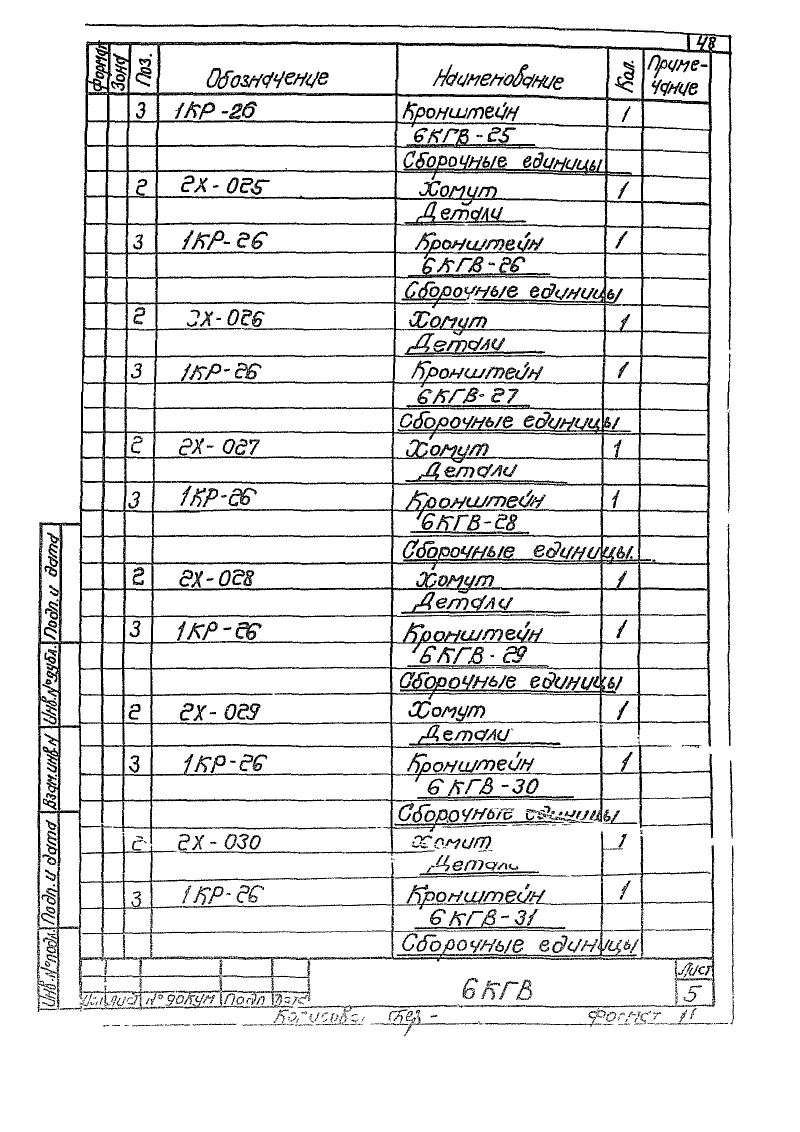 48
Формат Зона Поз. Обозначение Наименование Кол. Приме-
чание
3 1КР-26 Кронштейн 1
6КГВ-25
Сборочные единицы
2 2Х-025 Хомут 1
Детали
3 1КР-26 Кронштейн 1
6КГВ-26
Сборочные единицы
2 2Х-026 Хомут 1
Детали
3 1КР-26 Кронштейн 1
6КГВ-27
Сборочные единицы
2 2Х-027 Хомут 1
Детали
3 1КР-26 Кронштейн 1
6КГВ-28
Сборочные единицы.
2 2Х-028 Хомут 1
Детали
3 1КР-26 Кронштейн 1
6КГВ-29
Сборочные единицы
2 2Х-029 Хомут 1
Детали
3 1КР-26 Кронштейн 1
6КГВ-30
Сборочные единицы
2 2Х-030 Хомут 1
Детали
3 1КР-26 Кронштейн 1
6КГВ-31
Сборочные единицы
Подп. и дата
Инв.№дубл.
Взам.инв.№
Подп. и дата
Инв.№подл.
Лист №докум Подп Дата
6КГВ
Лист
5
Копировал Формат 11